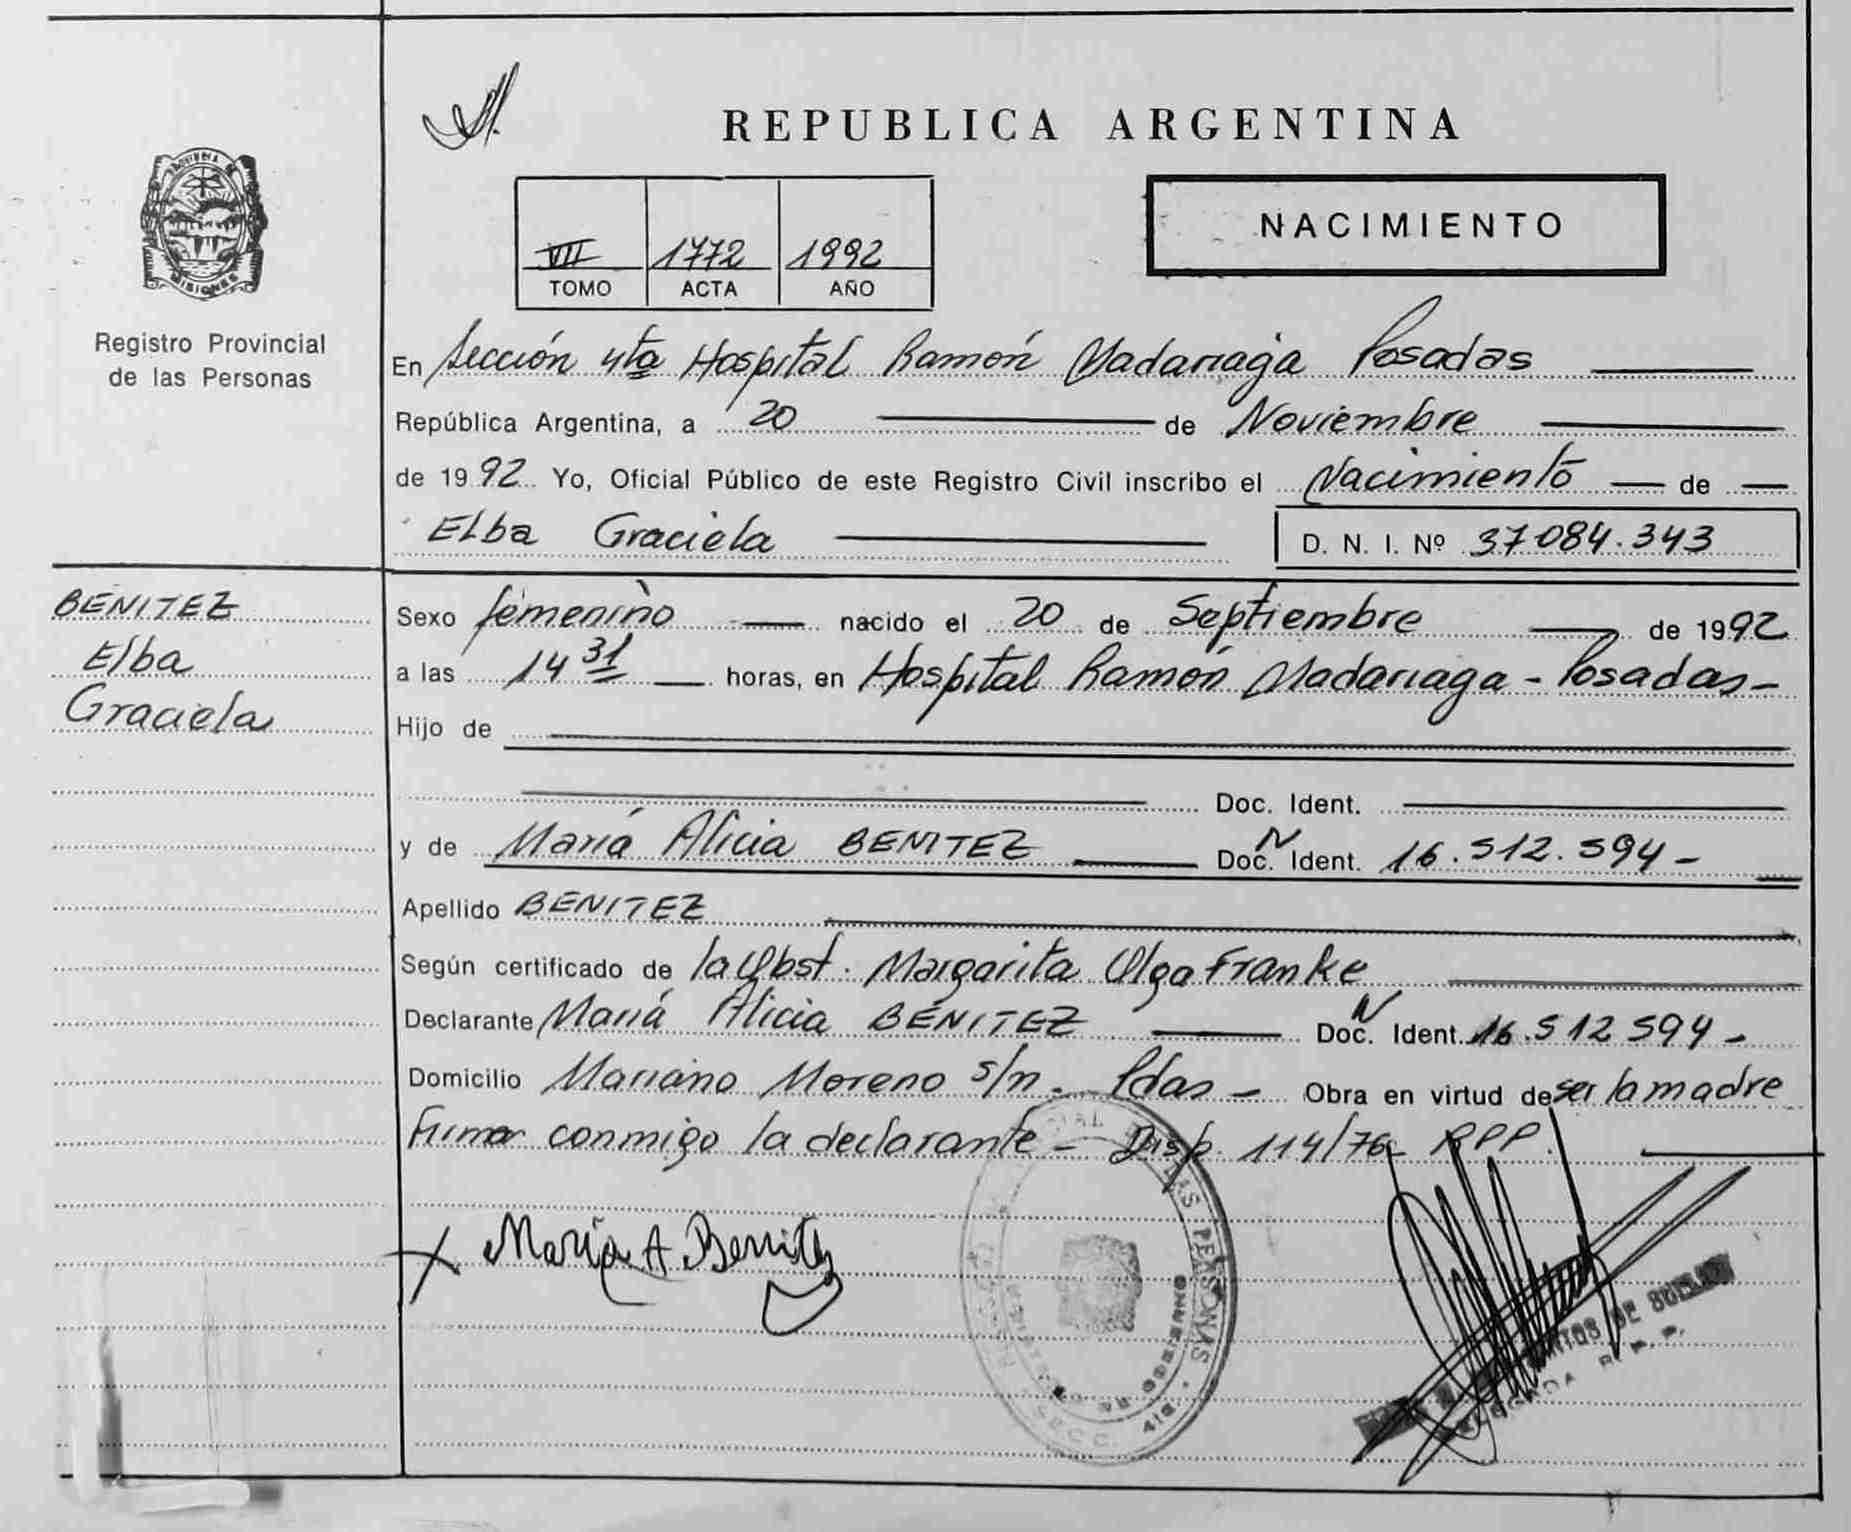 REPUBLICA ARGENTINA
PROVINCIA DE
MISIONES
Registro Provincial
de las Personas
VII 1772 1992
TOMO ACTA AÑO
NACIMIENTO
En Sección 4ta Hospital Ramón Madariaga Posadas
República Argentina, a 20 de Noviembre
de 1992 Yo, Oficial Público de este Registro Civil inscribo el Nacimiento de
Elba Graciela D. N. I. Nº 37.084.343
BENITEZ
Elba
Graciela
Sexo femenino nacido el 20 de Septiembre de 1992
a las 14 31 horas, en Hospital Ramón Madariaga - Posadas -
Hijo de
Doc. Ident.
y de María Alicia BENITEZ Doc. N Ident. 16.512.594 -
Apellido BENITEZ
Según certificado de la Obst. Margarita Olga Franke
Declarante María Alicia BENITEZ Doc. N Ident. 16.512 594 -
Domicilio Mariano Moreno s/n - Pdas - Obra en virtud de ser la madre
Firma conmigo la declarante - Disp. 114/76 RPP.
X María A Benitez
LAS PERSONAS
GOBIERNO
DE
R. P. P.